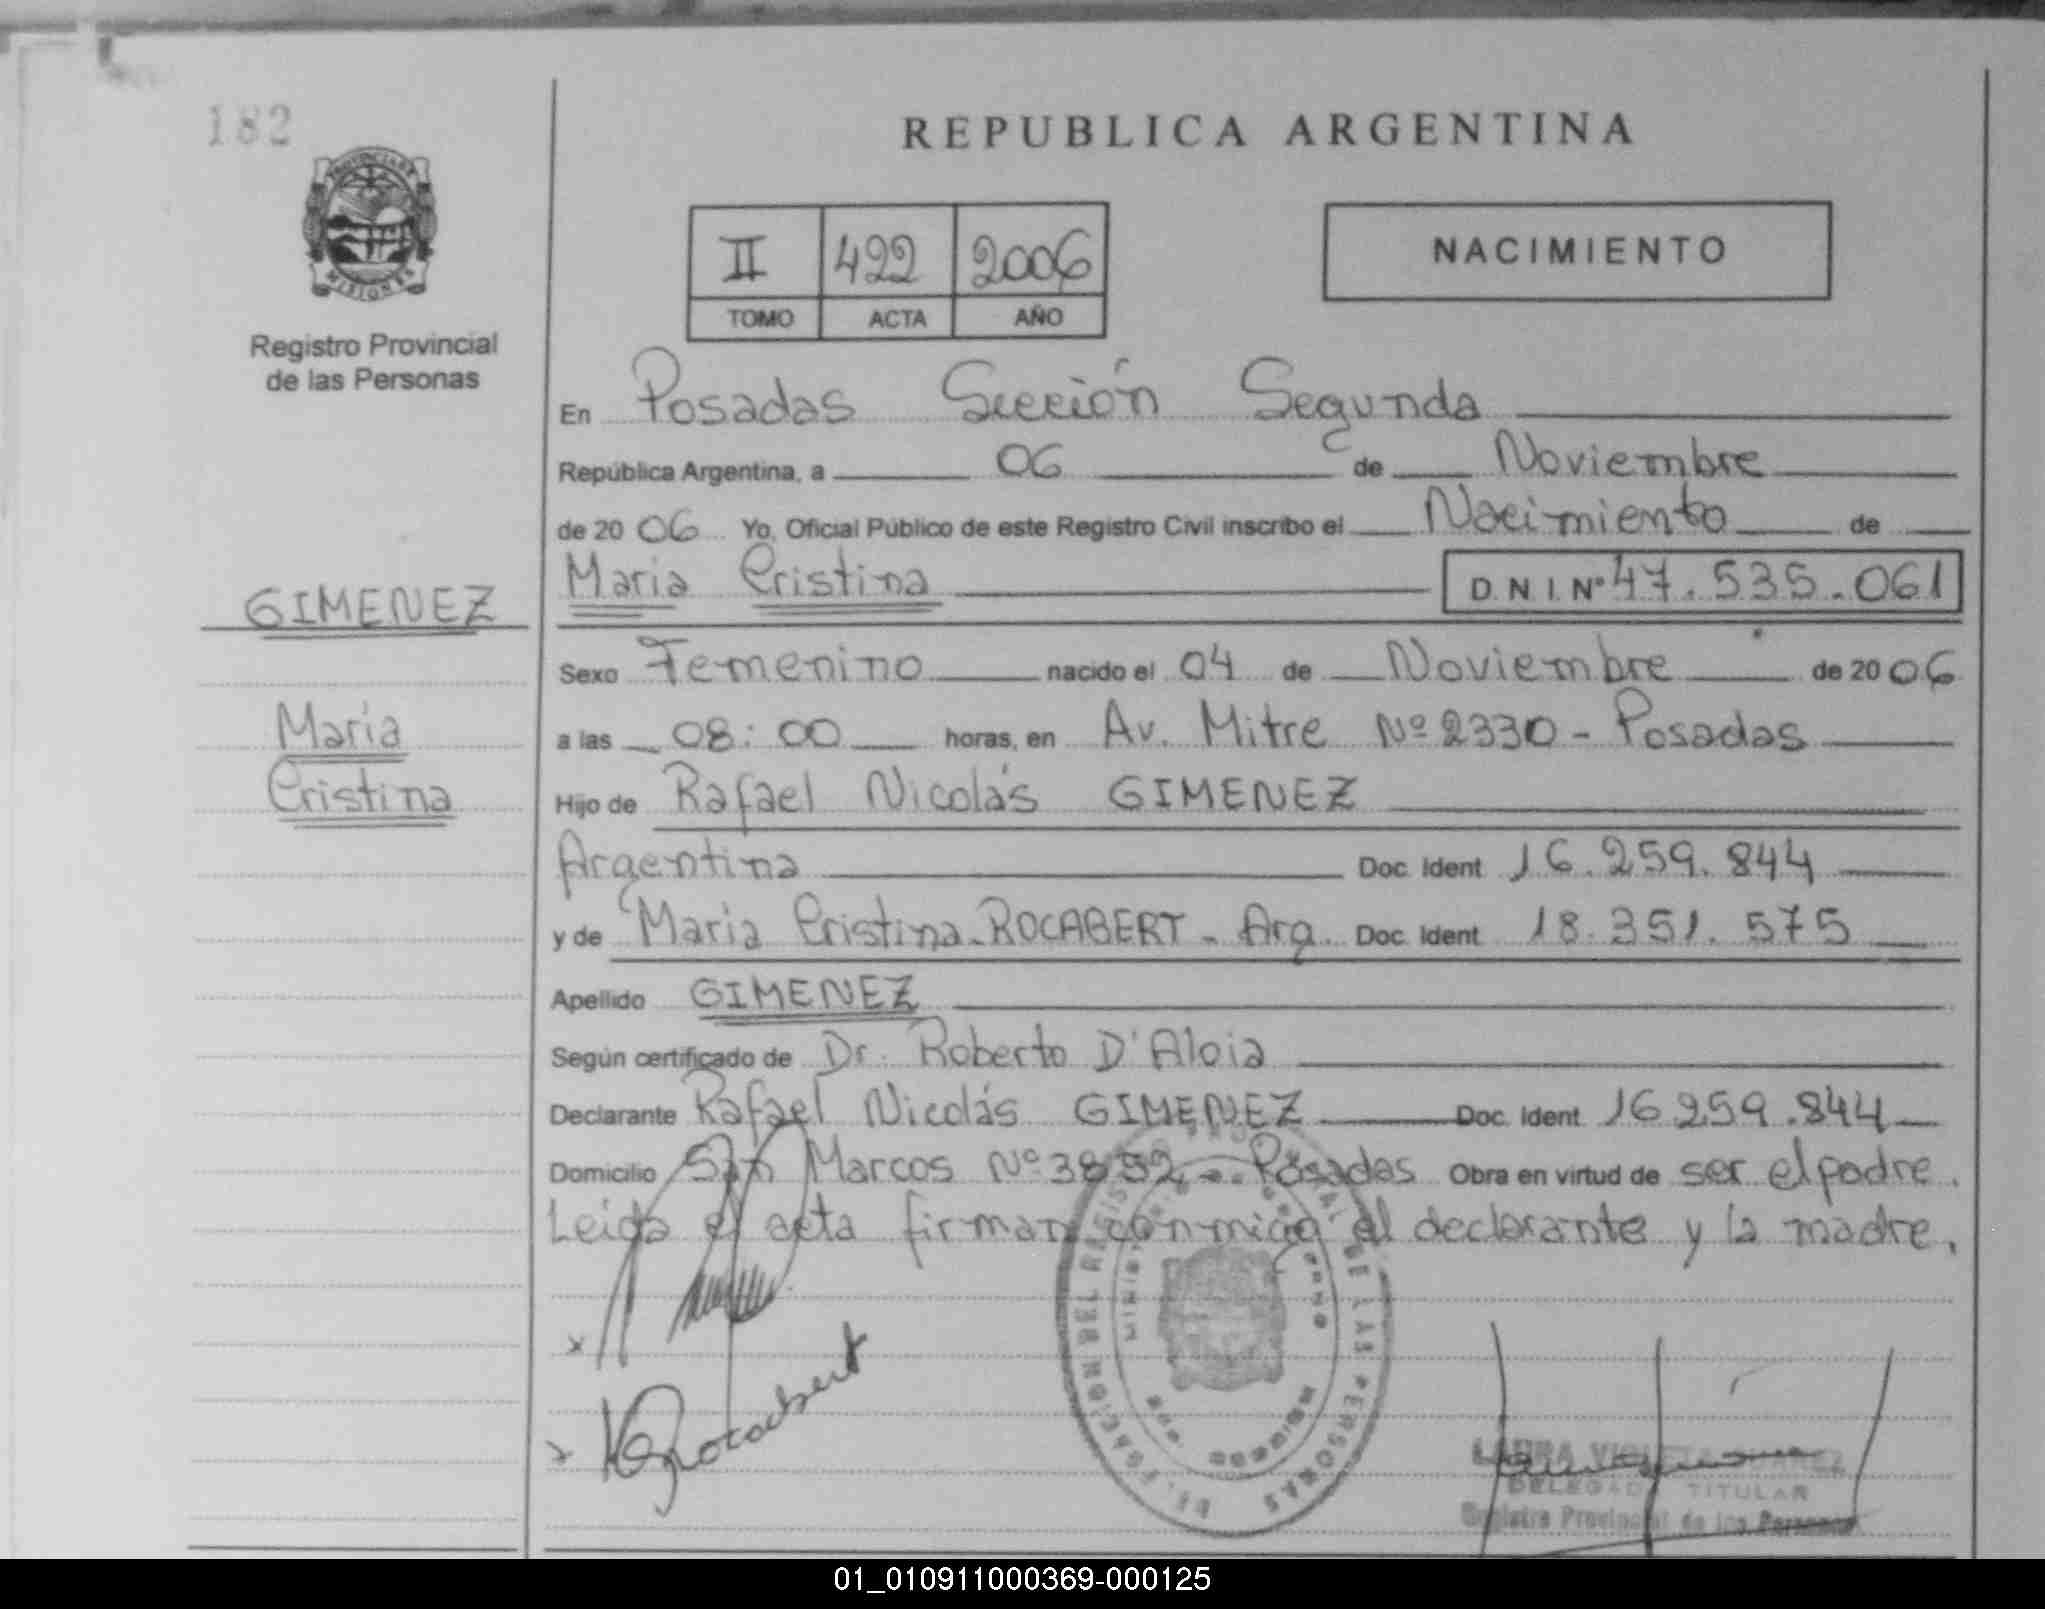 182
PROVINCIA DE
MISIONES
Registro Provincial
de las Personas
GIMENEZ
Maria
Cristina
REPUBLICA ARGENTINA
II 422 2006
TOMO ACTA AÑO
NACIMIENTO
En Posadas Sección Segunda
República Argentina, a 06 de Noviembre
de 20 06 Yo, Oficial Público de este Registro Civil inscribo el Nacimiento de
Maria Cristina D.N.I. Nº 47.535.061
Sexo Femenino nacido el 04 de Noviembre de 20 06
a las 08:00 horas, en Av. Mitre Nº 2330 - Posadas
Hijo de Rafael Nicolás GIMENEZ
Argentina Doc. Ident. 16.259.844
y de Maria Cristina ROCABERT - Arg. Doc. Ident. 18.351.575
Apellido GIMENEZ
Según certificado de Dr. Roberto D'Aloia
Declarante Rafael Nicolás GIMENEZ Doc. Ident. 16.259.844
Domicilio San Marcos Nº 3852 - Posadas Obra en virtud de ser el padre.
Leida el acta firman conmigo el declarante y la madre.
x
x Rocabert
DEL REGISTRO PROVINCIAL DE LAS PERSONAS
MISIONES
LAURA VIOLETA SUAREZ
DELEGADA TITULAR
Registro Provincial de las Personas
01_010911000369-000125